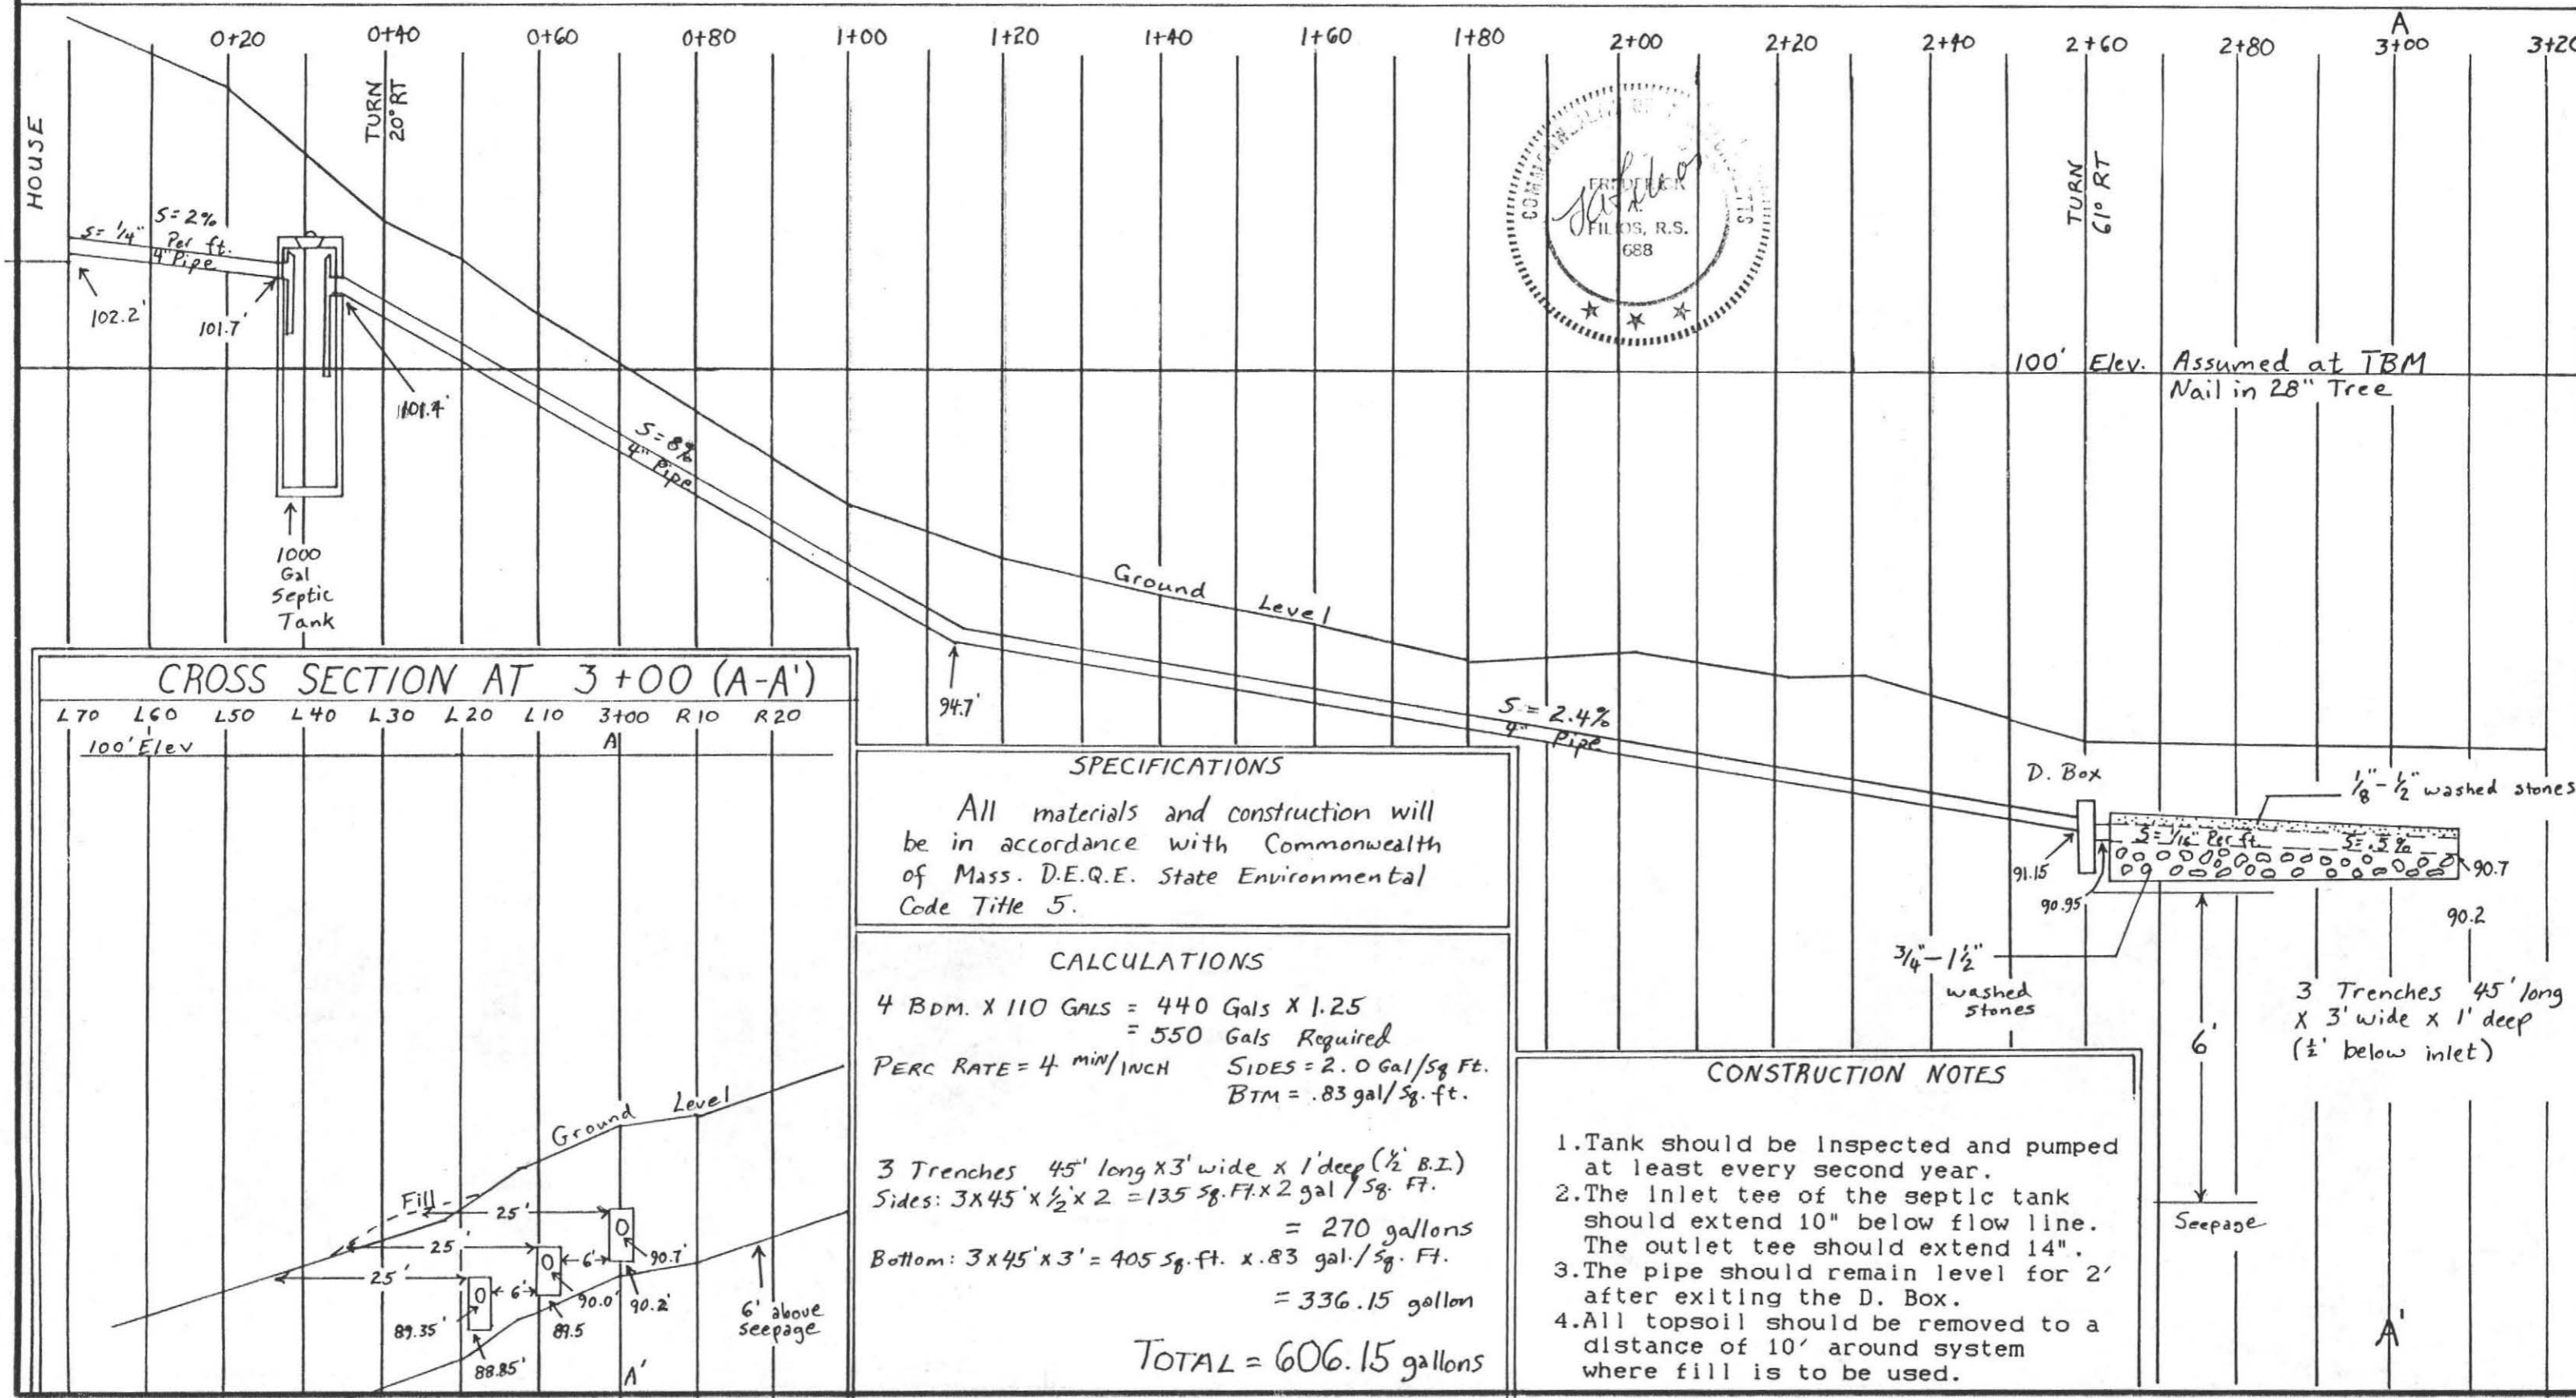 0+20 0+40 0+60 0+80 1+00 1+20 1+40 1+60 1+80 2+00 2+20 2+40 2+60 2+80 3+00 3+20
A
HOUSE
TURN
20° RT
TURN
61° RT
S=2%
S= 1/4" Per ft.
4" Pipe
102.2'
101.7'
101.4'
1000
Gal
Septic
Tank
S=8%
4" Pipe
FREDERICK
A.
FILIOS, R.S.
688
100' Elev. Assumed at TBM
Nail in 28" Tree
Ground Level
94.7'
S = 2.4%
4" Pipe
D. Box
1/8"-1/2" washed stones
S= 1/16" Per ft. S=.5%
91.15
90.95
90.7
90.2
3/4"-1 1/2"
washed
stones
6'
Seepage
3 Trenches 45' long
x 3' wide x 1' deep
(1/2' below inlet)
A'
CROSS SECTION AT 3+00 (A-A')
L70 L60 L50 L40 L30 L20 L10 3+00 R10 R20
100' Elev
A
Ground Level
Fill
25'
25'
25'
6'
6'
90.7'
90.0'
90.2'
89.35'
89.5
88.85'
6' above
seepage
A'
SPECIFICATIONS
All materials and construction will
be in accordance with Commonwealth
of Mass. D.E.Q.E. State Environmental
Code Title 5.
CALCULATIONS
4 BDM. X 110 GALS = 440 Gals X 1.25
= 550 Gals Required
PERC RATE = 4 MIN/INCH SIDES = 2.0 Gal/Sq Ft.
BTM = .83 gal/Sq. ft.
3 Trenches 45' long x 3' wide x 1' deep (1/2' B.I.)
Sides: 3x45'x 1/2'x 2 = 135 Sq. Ft. x 2 gal / Sq. Ft.
= 270 gallons
Bottom: 3 x 45' x 3' = 405 Sq. ft. x .83 gal./Sq. Ft.
= 336.15 gallon
TOTAL = 606.15 gallons
CONSTRUCTION NOTES
1.Tank should be Inspected and pumped
at least every second year.
2.The Inlet tee of the septic tank
should extend 10" below flow line.
The outlet tee should extend 14".
3.The pipe should remain level for 2'
after exiting the D. Box.
4.All topsoil should be removed to a
distance of 10' around system
where fill is to be used.